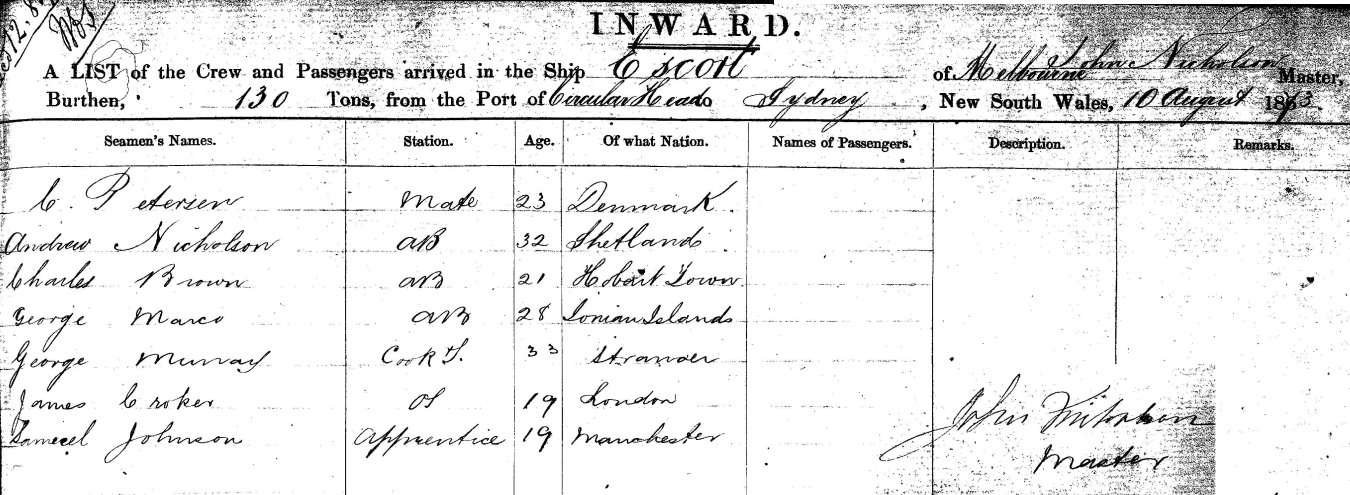 INWARD.
A LIST of the Crew and Passengers arrived in the Ship Escort of Melbourne John Nicholson Master,
Burthen, 130 Tons, from the Port of Circular Head to Sydney, New South Wales, 10 August 1863.
Seamen's Names. Station. Age. Of what Nation. Names of Passengers. Description. Remarks.
C. Petersen Mate 23 Denmark.
Andrew Nicholson AB 32 Shetlands
Charles Brown AB 21 Hobart Town
George Marco AB 28 Ionian Islands
George Murray Cook S. 33 Stranraer
James Croker OS 19 London
Samuel Johnson Apprentice 19 Manchester
John Nicholson
Master